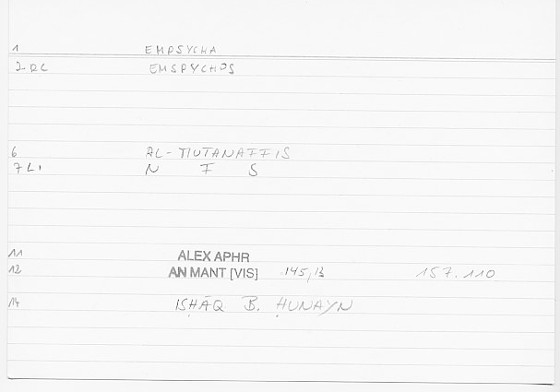 1 EMPSYCHA
2 DC EMSPYCHOS
6 AL-MUTANAFFIS
7 LI N F S
11 ALEX APHR
12 AN MANT [VIS] 145,13 157.110
14 ISḤĀQ B. ḤUNAYN